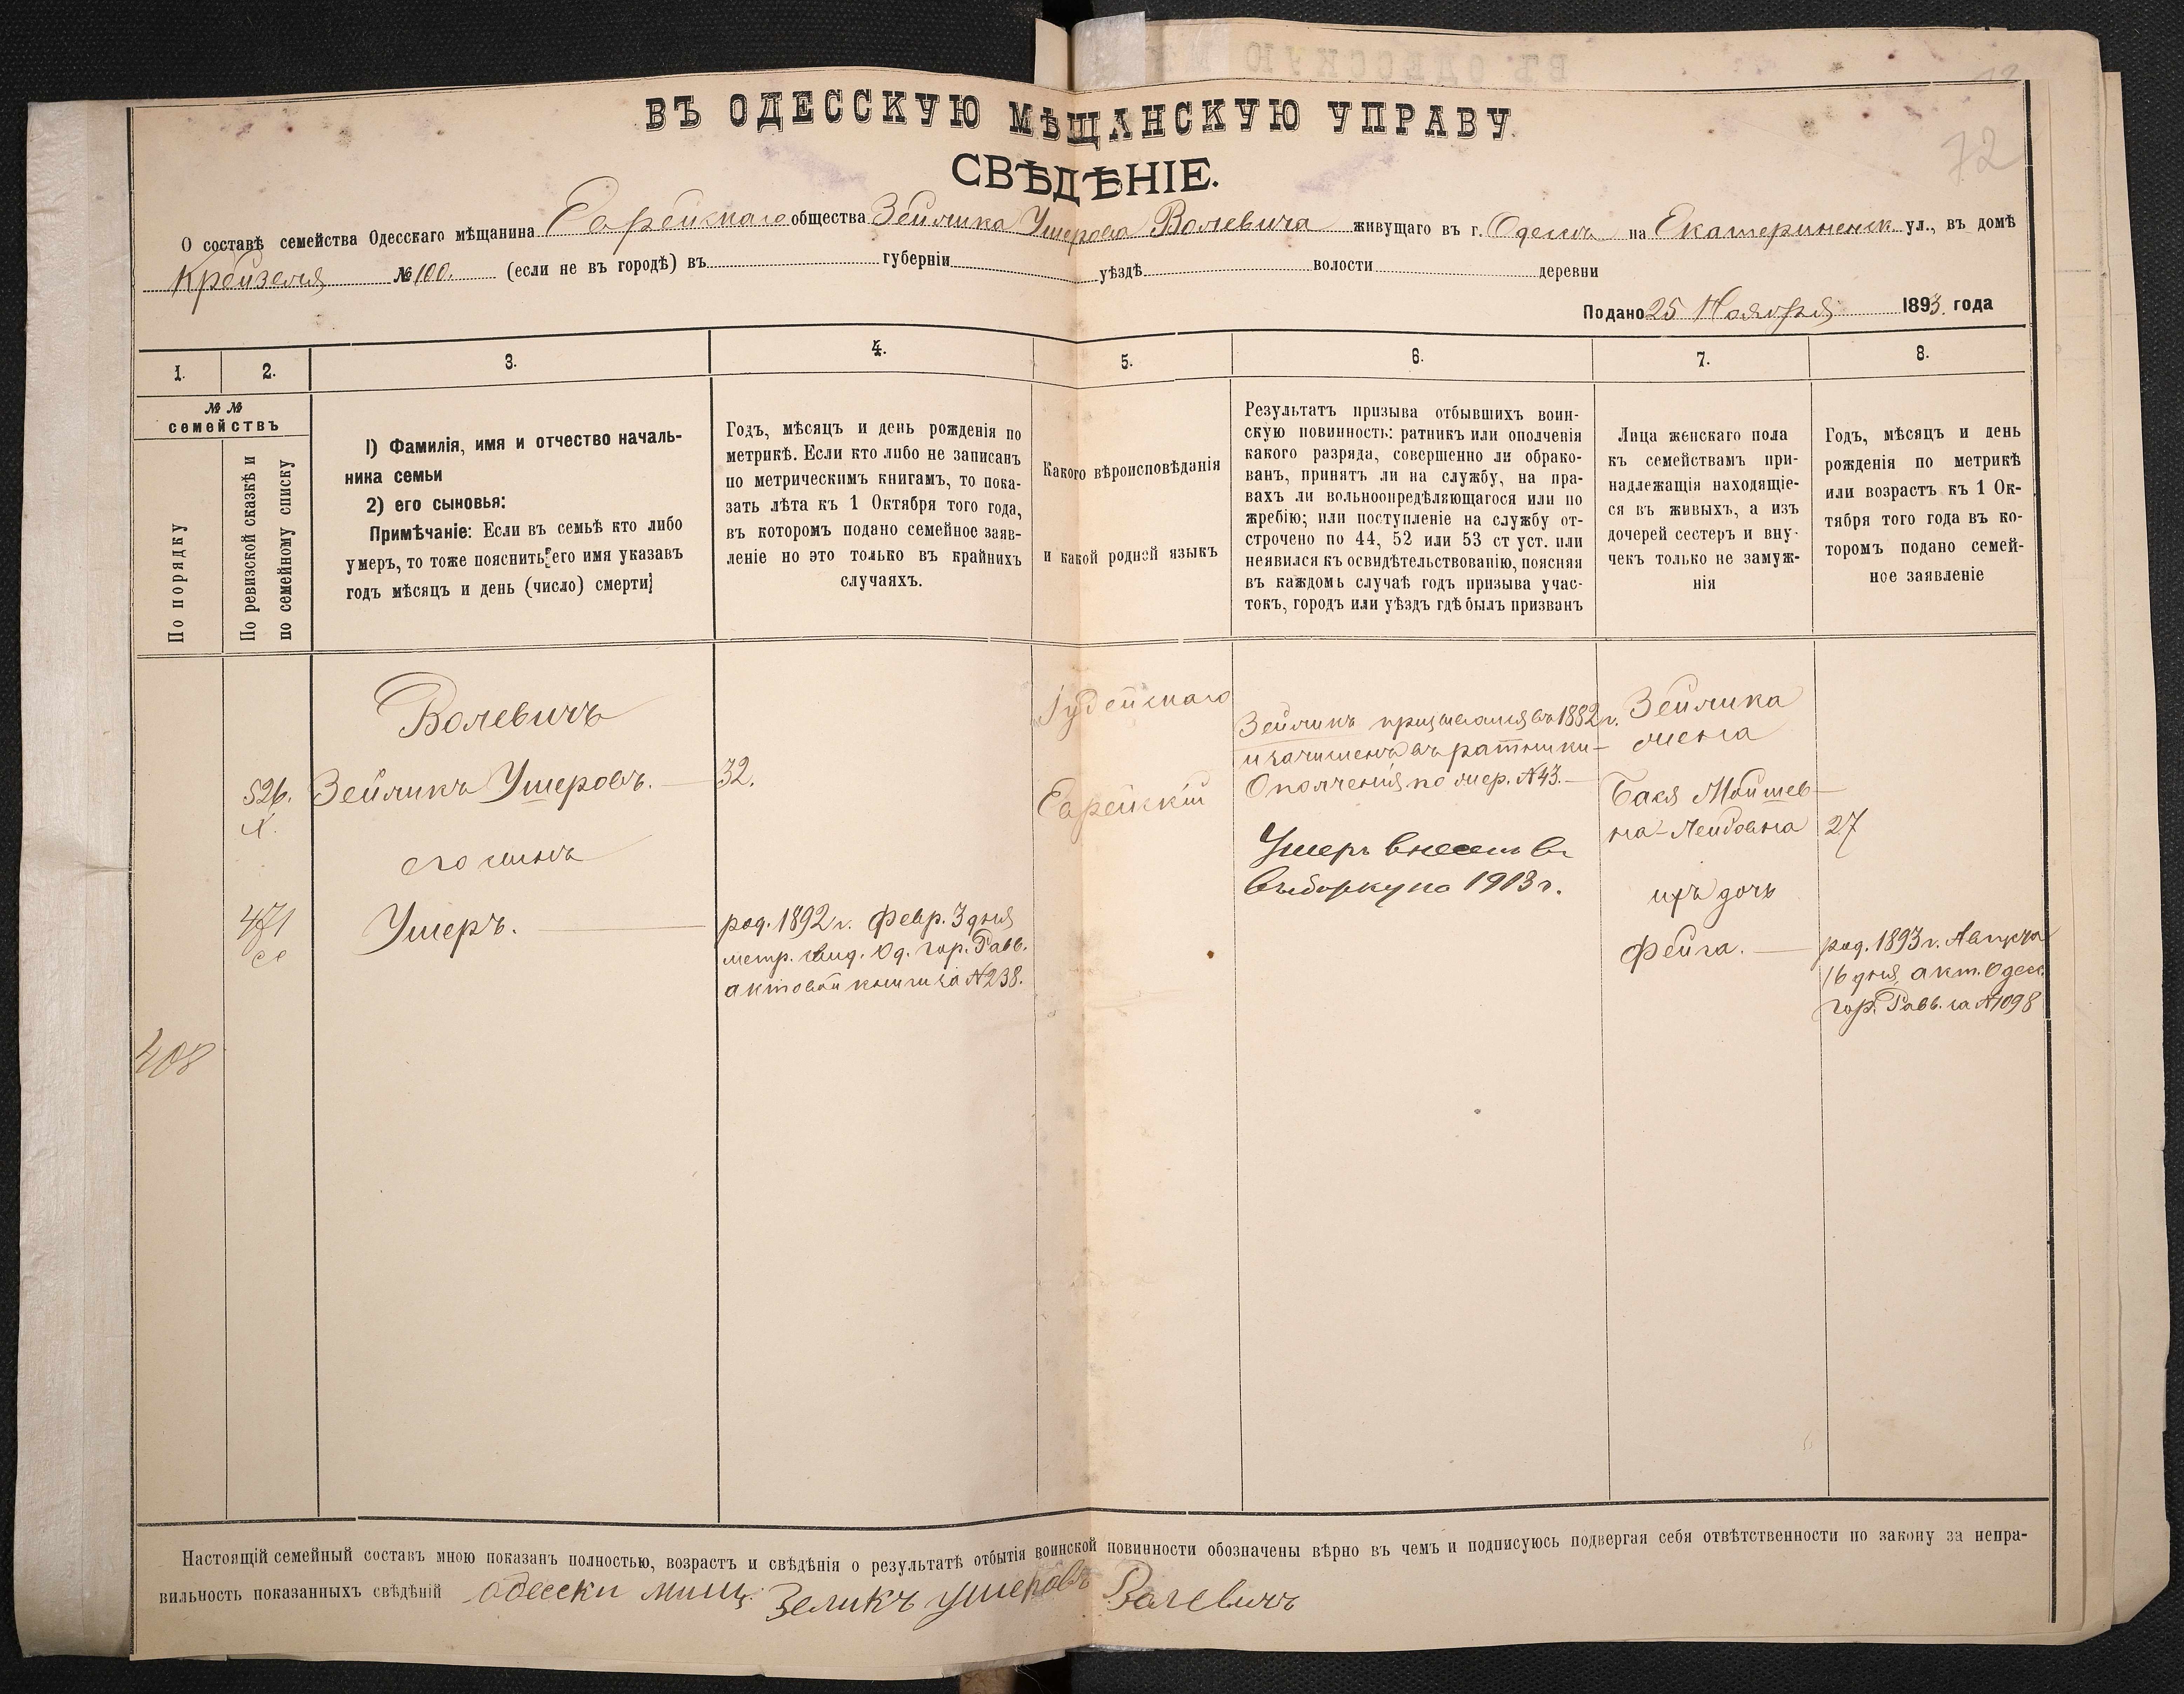 72
ВЪ ОДЕССКУЮ МѢЩАНСКУЮ УПРАВУ
СВѢДѢНІЕ.
О составѣ семейства Одесскаго мѣщанина Еврейскаго общества Зейлика Ушерова Волевича живущаго въ г. Одессѣ на Екатериненск ул., въ домѣ
Крейзеля № 100. (если не въ городѣ) въ губерніи уѣздѣ волости деревни
Подано 25 Ноября 1893 года
1.
2.
3.
4.
5.
6.
7.
8.
№ №
семействъ
По порядку
По ревизской сказкѣ и
по семейному списку
1) Фамилія, имя и отчество началь-
ника семьи
2) его сыновья:
Примѣчаніе: Если въ семьѣ кто либо
умеръ, то тоже пояснить его имя указавъ
годъ мѣсяцъ и день (число) смерти]
Годъ, мѣсяцъ и день рожденія по
метрикѣ. Если кто либо не записанъ
по метрическимъ книгамъ, то пока-
зать лѣта къ 1 Октября того года,
въ которомъ подано семейное заяв-
леніе но это только въ крайнихъ
случаяхъ.
Какого вѣроисповѣданія
и какой родной языкъ
Результатъ призыва отбывшихъ воин-
скую повинность: ратникъ или ополченія
какого разряда, совершенно ли обрако-
ванъ, принятъ ли на службу, на пра-
вахъ ли вольноопредѣляющагося или по
жребію; или поступленіе на службу от-
строчено по 44, 52 или 53 ст уст. или
неявился къ освидѣтельствованію, поясняя
въ каждомъ случаѣ годъ призыва учас-
токъ, городъ или уѣздъ гдѣ былъ призванъ
Лица женскаго пола
къ семействамъ при-
надлежащія находящіе-
ся въ живыхъ, а изъ
дочерей сестеръ и вну-
чекъ только не замуж-
нія
Годъ, мѣсяцъ и день
рожденія по метрикѣ
или возрастъ къ 1 Ок-
тября того года въ ко-
торомъ подано семей-
ное заявленіе
Волевичъ
526.
Зейликъ Ушеровъ.
32.
его сынъ
471
Ушеръ.
род. 1892 г. Февр. 3 дня
метр. свид. Од. гор. Равв.
актовой книги за №238.
408
Іудейскаго
Еврейскій
Зейликъ призывался въ 1882 г.
и зачисленъ въ ратники
Ополченія по жер. №43.
Ушеръ внесен въ
выборку по 1913 г.
Зейлика
жена
Бася Мойшев-
на-Лейбовна
27
ихъ дочь
Фейга.
род. 1893 г. Августа
16 дня, акт. Одесс.
гор. Равв. за №1098
Настоящій семейный составъ мною показанъ полностью, возрастъ и свѣдѣнія о результатѣ отбытія воинской повинности обозначены вѣрно въ чемъ и подписуюсь подвергая себя отвѣтственности по закону за непра-
вильность показанныхъ свѣдѣній одесски мищ. Зеликъ ушеровъ Валевичъ